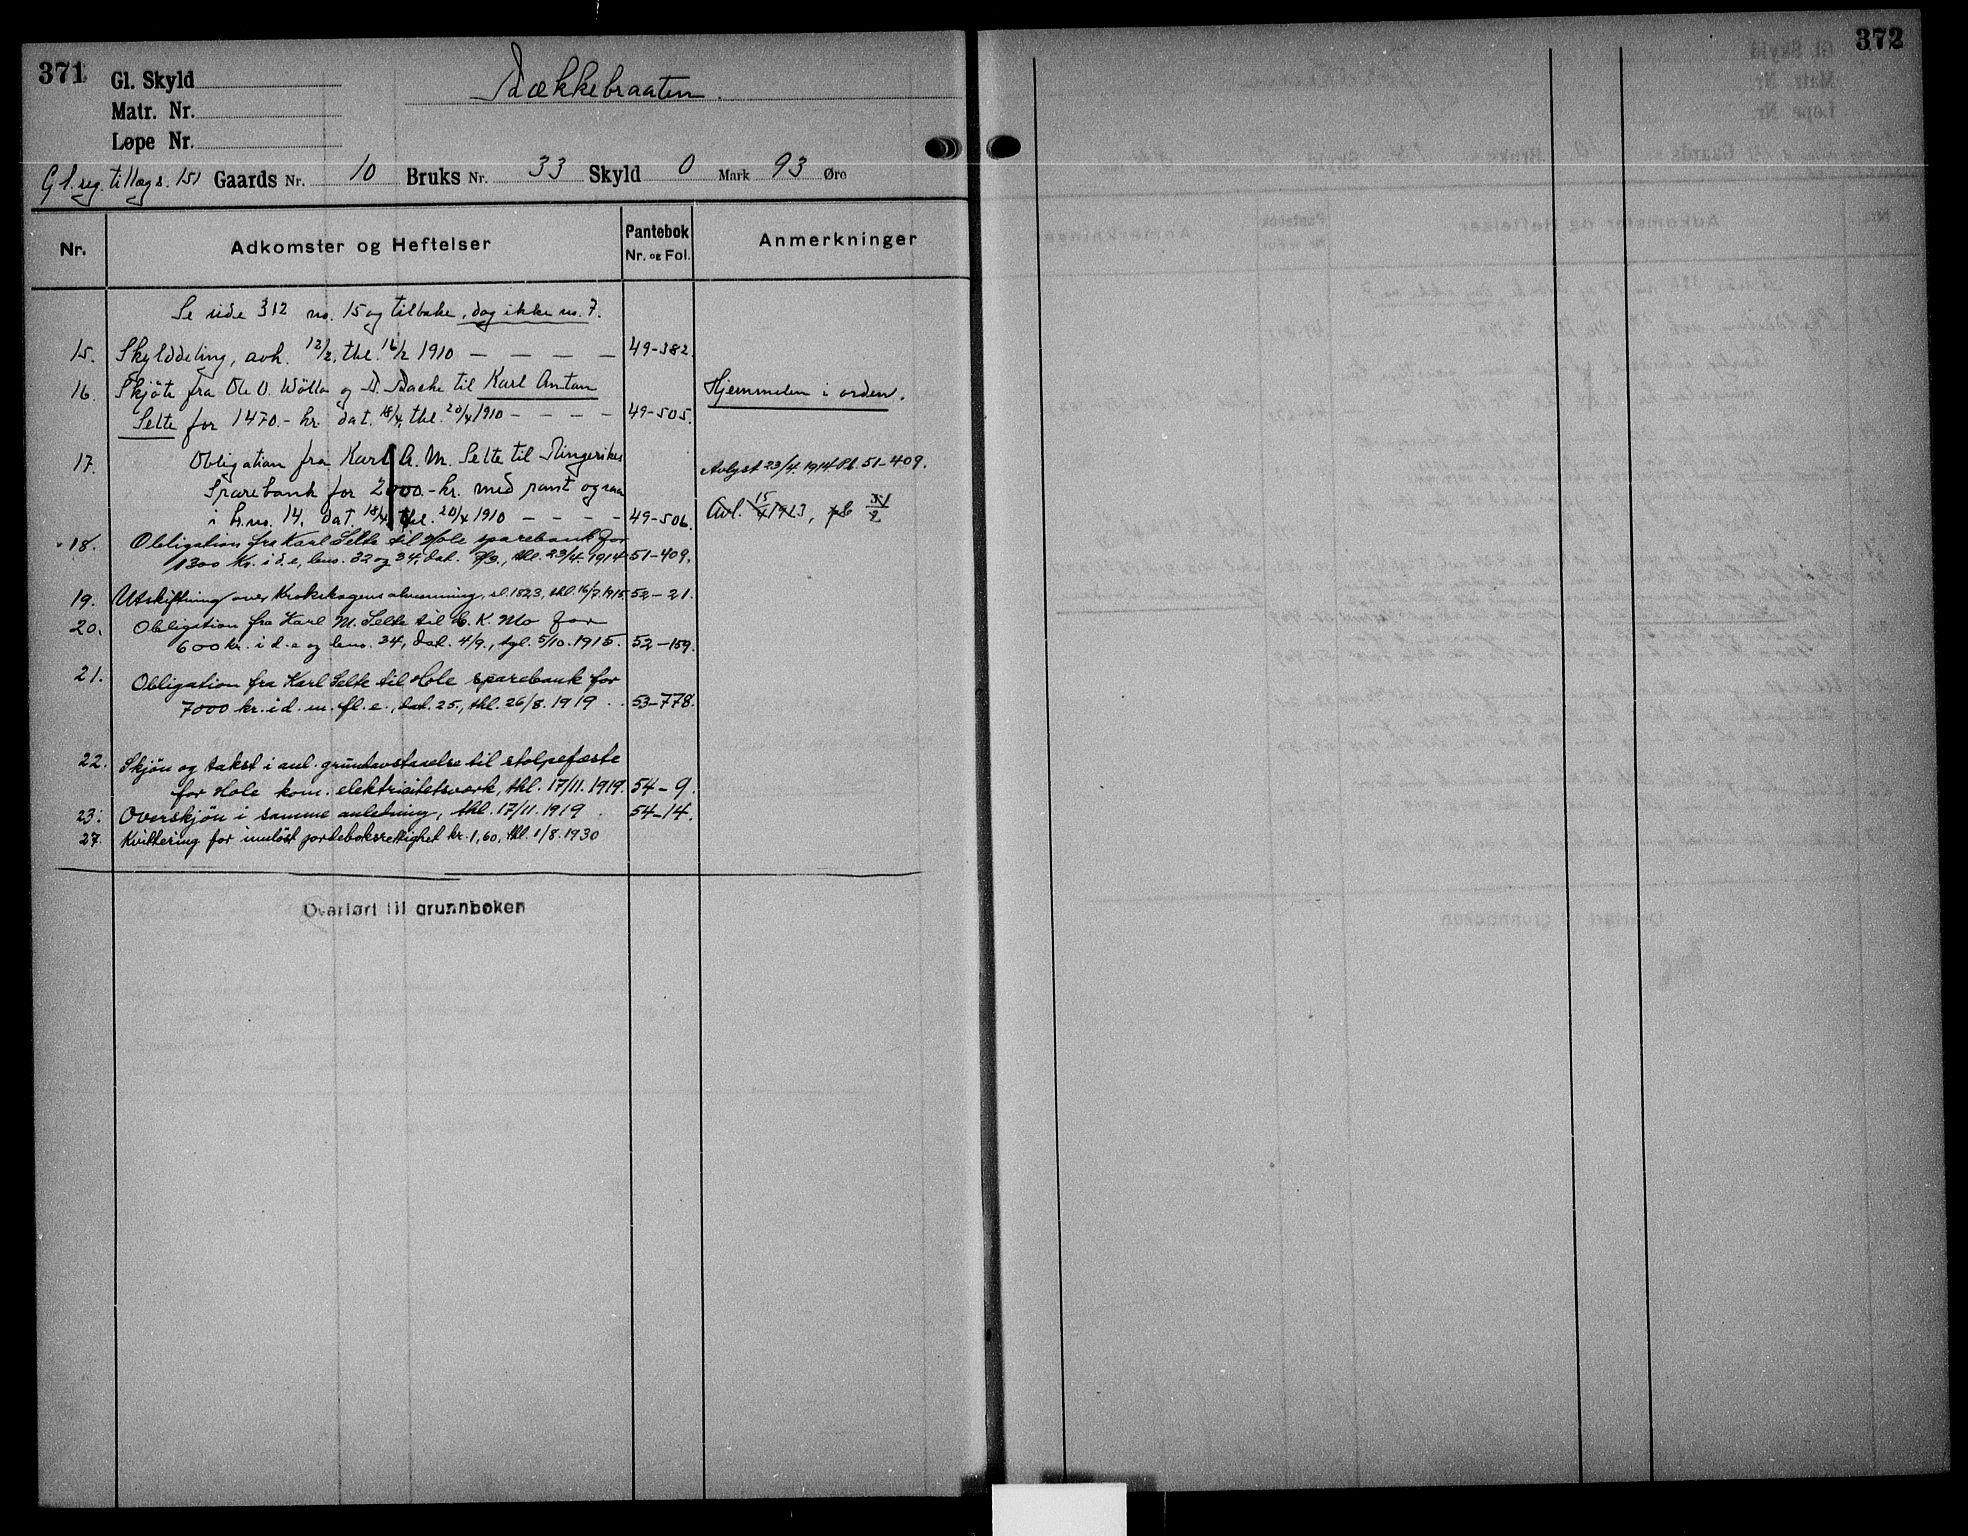 371
Gl. Skyld
Bækkebraaten.
Matr. Nr.
Løpe Nr.
Gl. reg. tillæg s. 151 Gaards Nr. 10 Bruks Nr. 33 Skyld 0 Mark 93 Øre
Nr. Adkomster og Heftelser Pantebok Nr. og Fol. Anmerkninger
Se side 312 no. 15 og tilbake, dog ikke no. 7.
15. Skylddeling, avh. 12/2, thl. 16/2 1910 — — — — 49-382.
16. Skjøte fra Ole O. Wölla og D. Bache til Karl Anton Hjemmelen i orden.
Selte for 1470.- kr. dat. 18/4, thl. 20/4 1910 — — — — 49-505.
17. Obligation fra Karl A. M. Selte til Ringerikes Avlyst 23/4. 1914 Pb. 51-409.
Sparebank for 2000.- kr. med pant ogsaa
i br.no. 14, dat. 18/4 thl. 20/4 1910 — — — — 49-506. Avl. 15/4 1913, pb
18. Obligation fra Karl Selte til Hole sparebank for
1300 Kr. i d. e, bno. 32 og 34, dat. , thl. 23/4. 1914 51-409.
19. Utskiftning over Krokskogens almenning, sl. 1823, thl. 16/7. 1915. 52-21.
20. Obligation fra Karl M. Selte til C. K. Mo for
600 kr. i d. e og bno. 34, dat. 4/9., tgl. 5/10. 1915. 52-159.
21. Obligation fra Karl Selte til Hole sparebank for
7000 kr. i d. m. fl. e., dat. 25., thl. 26/8. 1919 . . 53-778.
22. Skjøn og takst i anl. grundavstaaelse til stolpefæste
for Hole kom. elektricitetsverk, thl. 17/11. 1919. 54-9.
23. Overskjøn i samme anledning, thl. 17/11. 1919 . 54-14.
27. Kvittering for innløst jordeboksrettighet kr. 1,60, thl. 1/8. 1930
Overført til grunnboken
372